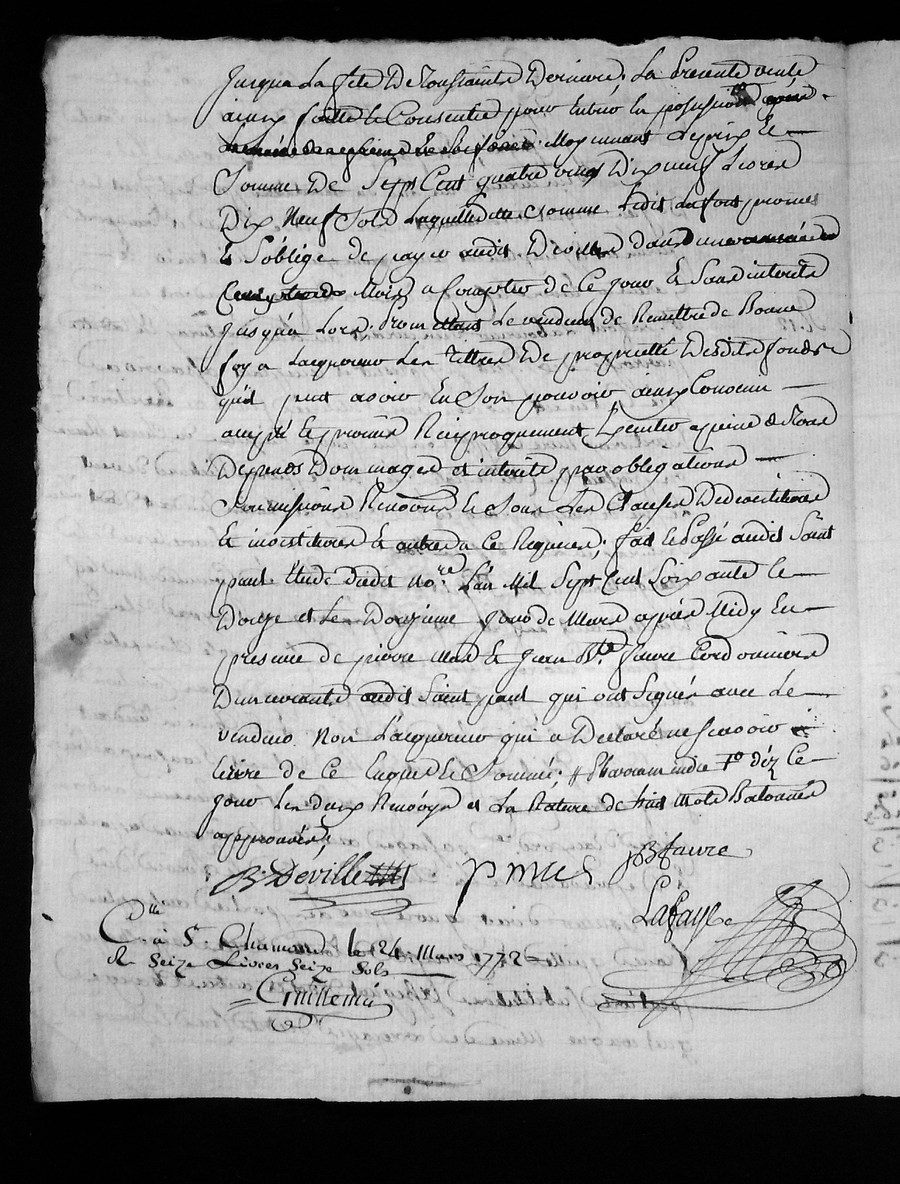 Jusqua La fete De Toussaints Derniere, La Presente vente
ainsy faitte et Consentie pour Entrer En possession
Moyennant Leprix Et
Somme De Sept Cent quatre vingt Dixneuf Livres
Dix Neuf Sols Laquelledite Somme Ledit promet
Et Soblige de payer audit Deville Dans
Mois a Compter de Ce jour Et Sans interets
Jusqua Lors, Promettant Levendeur de Remettre de Bonne
foy a Lacquereur Les Tittres De proprietté Desdits fonds
quil peut avoir En Son pouvoir ainsy Convenu
accepté Et promis Reciproquement Executer apeine de Tous
Depends Dommages et interets par obligations
Soumissions Renonons Et Sous Les Clauses
Et autres a Ce Requises, fait Et Passé audit Saint
paul Etude dudit no.re Lan Mil Sept Cent Soixante et
Douze et Le Douzieme jour de Mars apres Midy En
presence de pierre Mas Et Jean B.te Favre Cordonniers
Demeurants audit Saint paul qui ont Signés avec Le
vendeur Non Lacquereur qui a Declaré ne Scavoir
Ecrire de Ce Enquis Et Sommé,
jour Les deux Renvoys et La Rature de huit Mots Batonnés
approuvés,
B. Deville pmas JB favre
Lafaye
C.lle à S.t Chamond le 24 Mars 1772
R Seize Livres Seize Sols
Guillemin